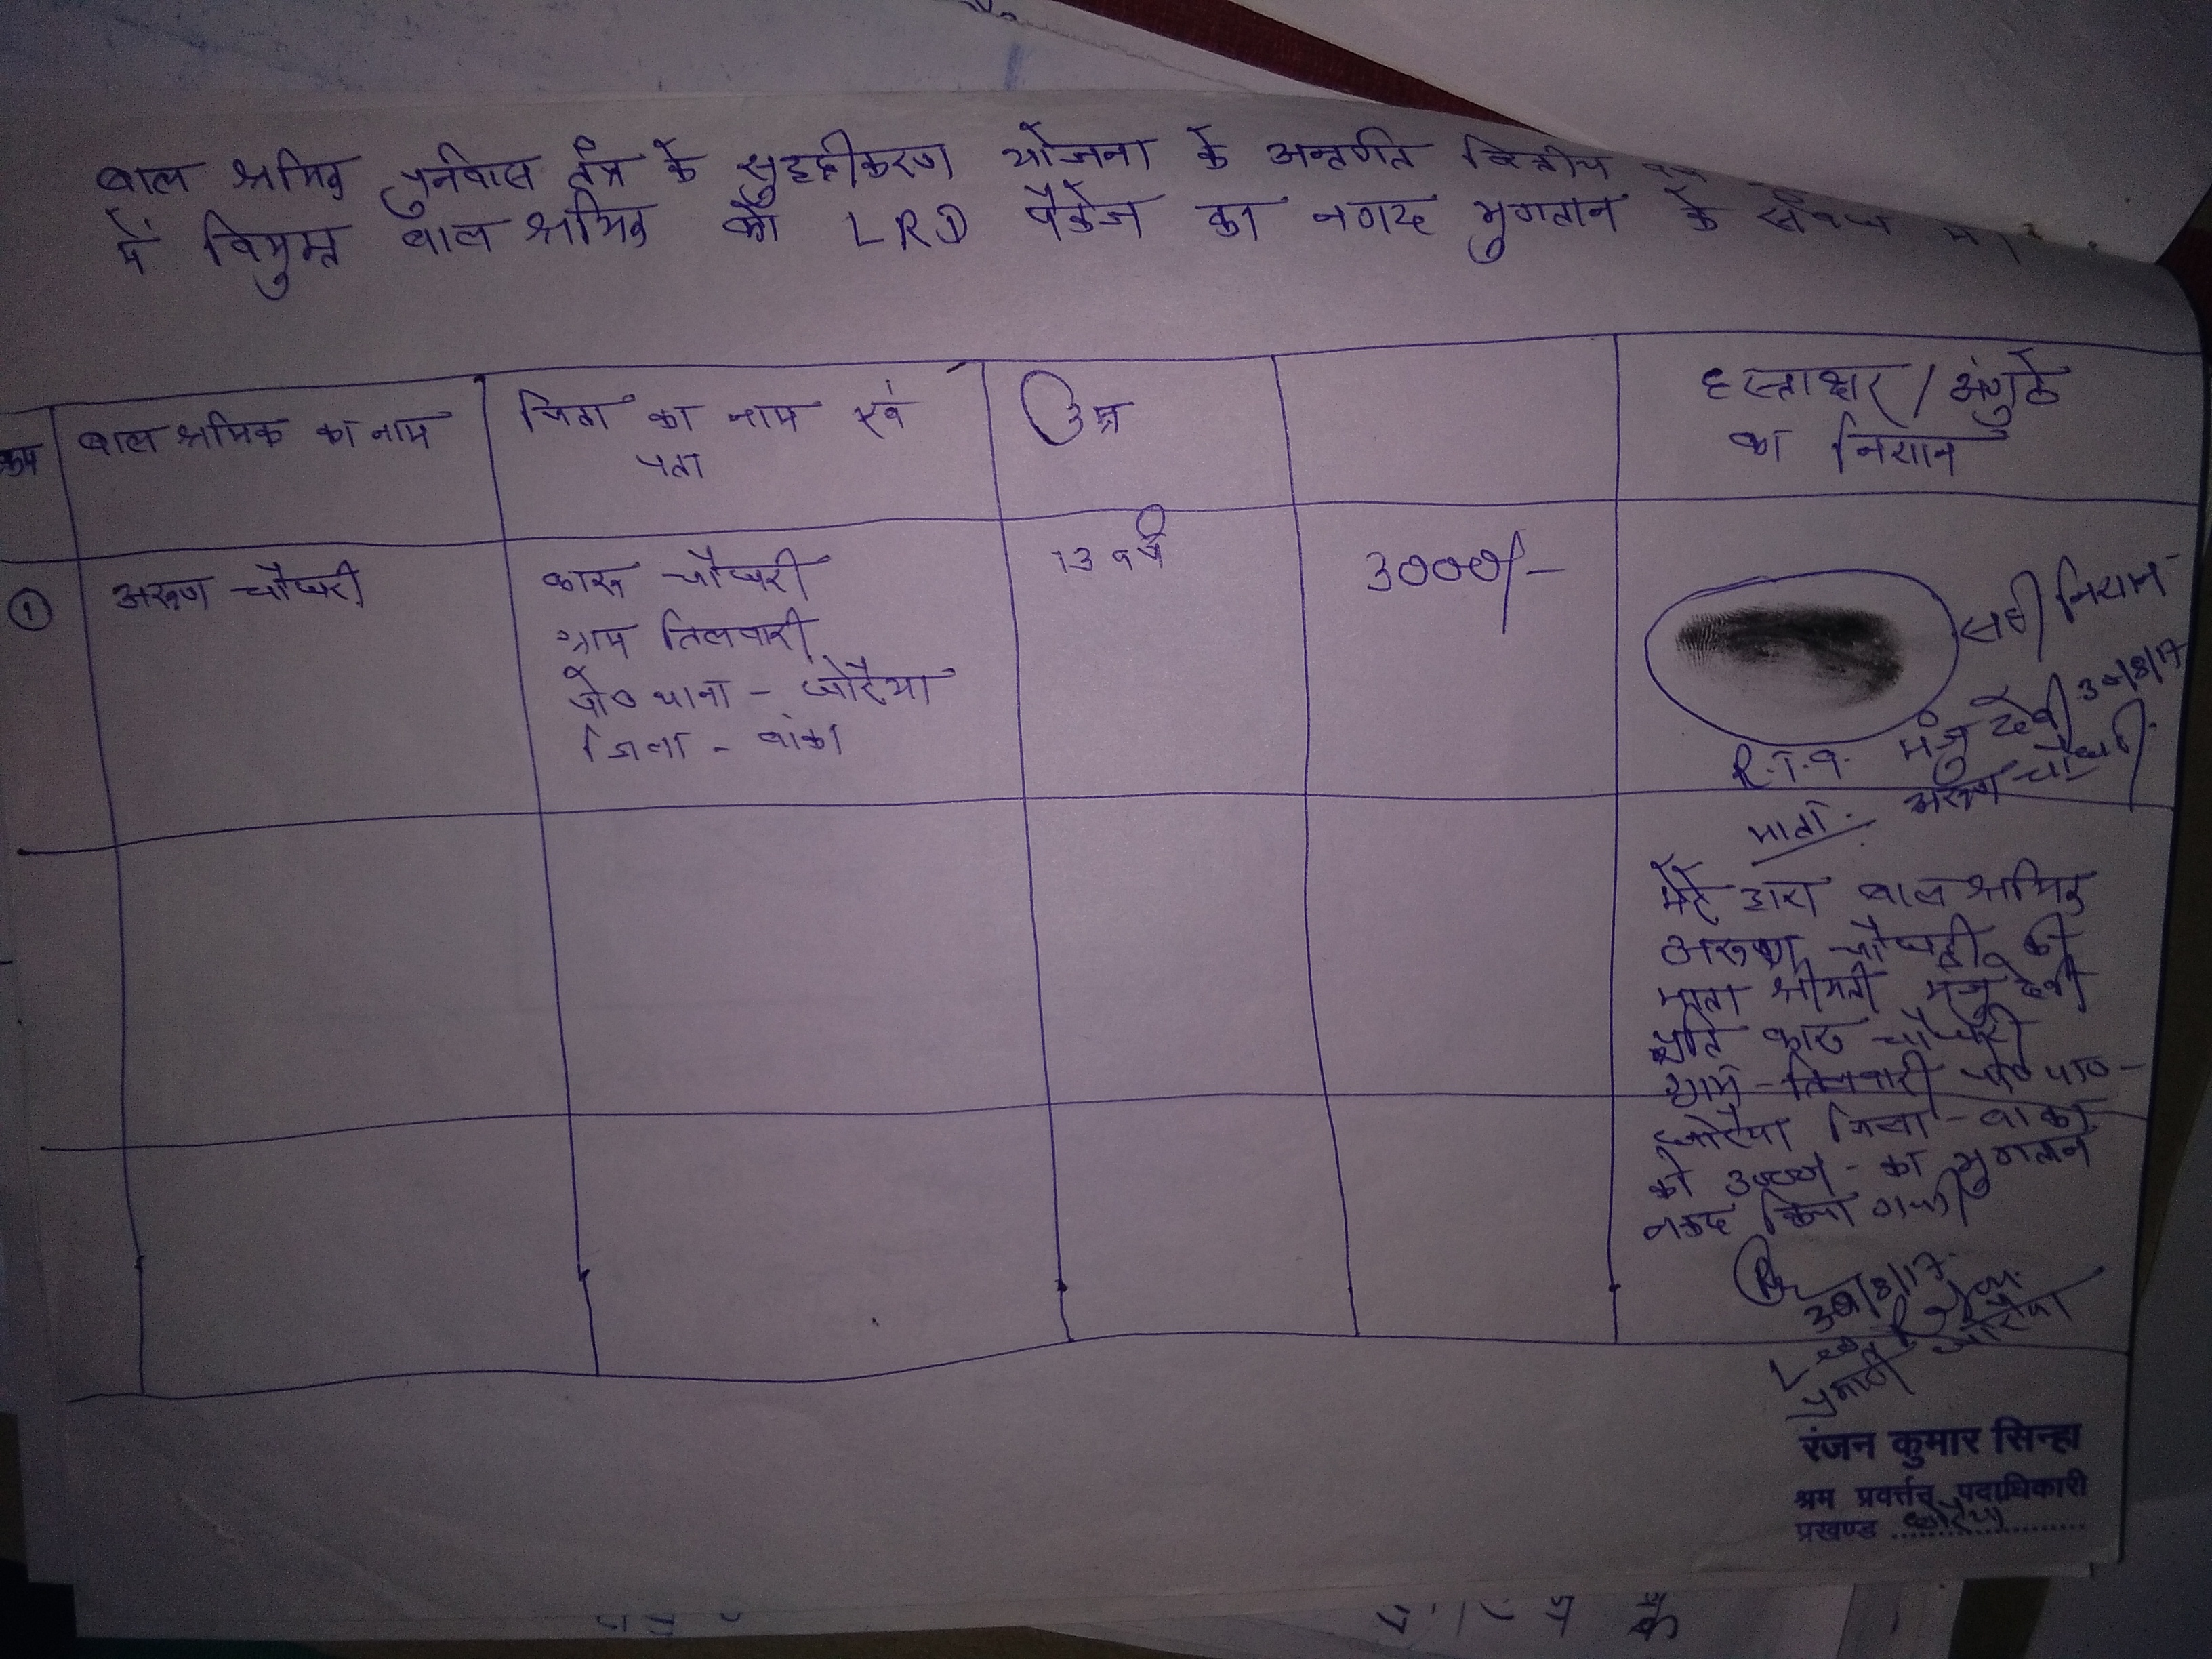 बाल श्रमिक पुर्नवास तंत्र के सुदृढ़ीकरण योजना के अन्तर्गत वित्तीय
में विमुक्त बाल श्रमिक को LRD पैकेज का नगद भुगतान के संबंध में
क्रम
बाल श्रमिक का नाम
पिता का नाम एवं
पता
उम्र
हस्ताक्षर / अंगुठे
का निशान
①
अरूण चौधरी
कारू चौधरी
ग्राम तिलवारी
पो० थाना - धोरैया
जिला - बांका
13 वर्ष
3000/-
सही निशान
R.T.I. मंजु देवी 30/8/17
माता - अरूण चौधरी
मेरे द्वारा बाल श्रमिक
अरूण चौधरी की
माता श्रीमती मंजु देवी
पति कारू चौधरी
ग्राम - तिलवारी पो० था० -
धोरैया जिला - बांका
को 3000/- का भुगतान
नकद किया गया
30/8/17
प्रभारी धोरैया
रंजन कुमार सिन्हा
श्रम प्रवर्त्तन पदाधिकारी
प्रखण्ड धोरैया
के